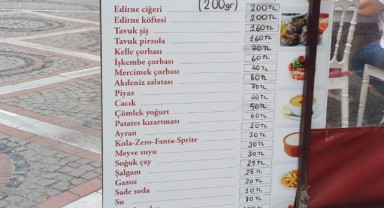 Edirne ciğeri (200gr) 200TL
Edirne köftesi 200TL
Tavuk şiş 160TL
Tavuk pirzola 160TL
Kelle çorbası 70TL
İşkembe çorbası 60TL
Mercimek çorbası 40TL
Akdeniz salatası 60TL
Piyaz 70TL
Cacık 40TL
Çömlek yoğurt 50TL
Patates kızartması 60TL
Ayran 20TL
Kola-Zero-Fanta-Sprite 30TL
Meyve suyu 30TL
Soğuk çay 30TL
Şalgam 25TL
Gazoz 25TL
Sade soda 20TL
Su 10TL
80TL